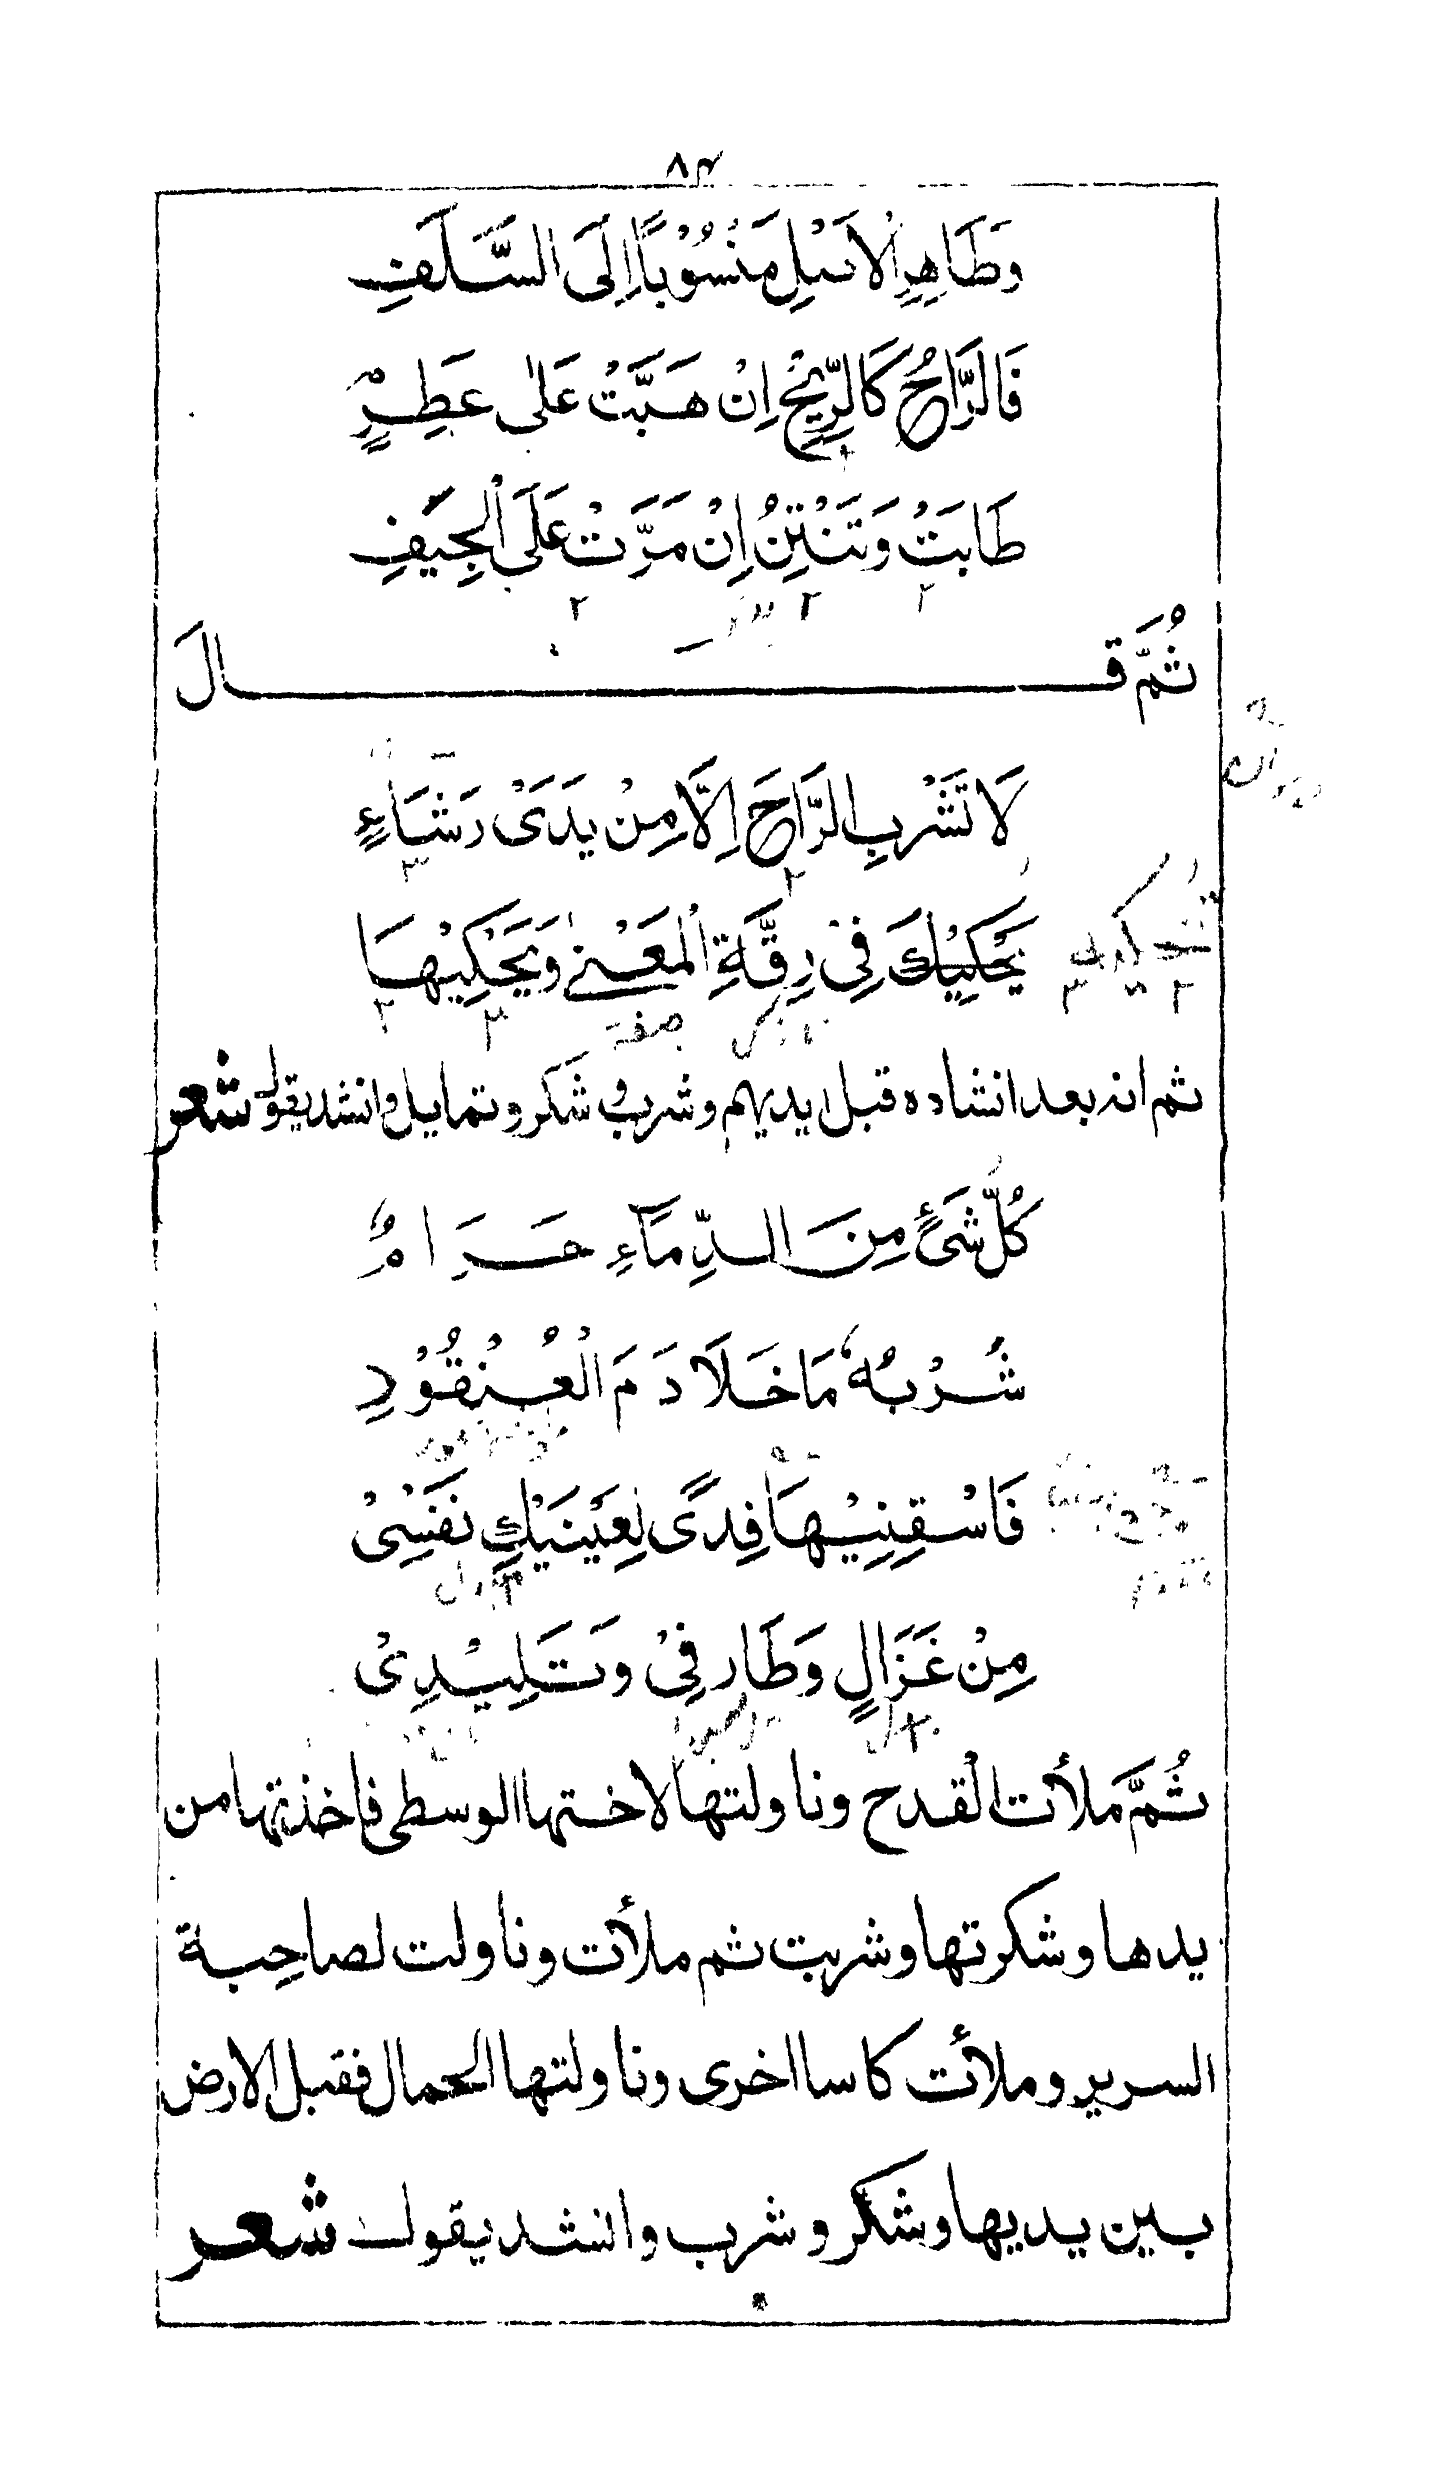 ٨٣
وَطَاهِرِ الْاَصْلِ مَنْسُوْبًا اِلَى السَّلَفِ
فَالرَّاحُ كَالرِّيْحِ اِنْ هَبَّتْ عَلٰى عَطِرٍ
طَابَتْ وَتَنْتِنُ اِنْ مَرَّتْ عَلَى الْجِيَفِ
ثُمَّ قَالَ
لَا تَشْرَبِ الرَّاحَ اِلَّا مِنْ يَدَىْ رَشَاءٍ
يَحْكِيْكَ فِىْ رِقَّةِ الْمَعْنٰى وَيَحْكِيْهَا
ثم انه بعد انشاده قبل ايديهم وشرب و شكر وتمايل وانشد يقول شعر
كُلُّ شَىْءٍ مِنَ الدِّمَآءِ حَرَامٌ
شُرْبُهٗ مَا خَلَا دَمَ الْعُنْقُوْدِ
فَاسْقِنِيْهَا فِدًى لِعَيْنَيْكِ نَفْسِىْ
مِنْ غَزَالٍ وَطَارِفِىْ وَتَلِيْدِىْ
ثُمَّ ملأت القدح وناولتها لاختها الوسطى فاخذتها من
يدها وشكرتها وشربت ثم ملأت وناولت لصاحبة
السرير وملأت كاسا اخرى وناولتها الحمال فقبل الارض
بين يديها وشكر و شرب وانشد يقول شعر